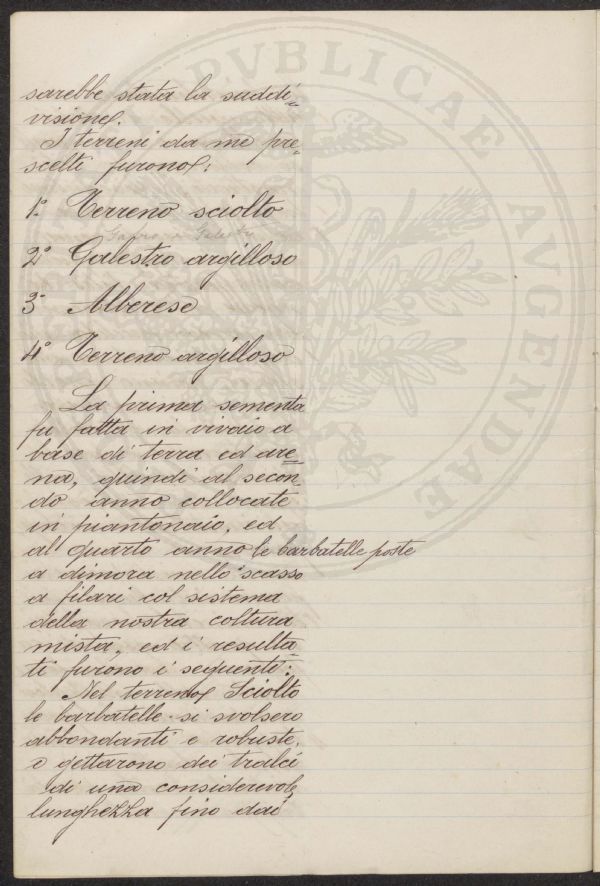 sarebbe stata la suddi=
visione.
I terreni da me pre=
scelti furono:
1° Terreno sciolto
2° Galestro argilloso
3° Alberese
4° Terreno argilloso
La prima sementa
fu fatta in vivaio a
base di terra ed are=
na, quindi al secon=
do anno collocate
in piantonaio, ed
al quarto anno le barbatelle poste
a dimora nello scasso
a filari col sistema
della nostra coltura
mista, ed i resulta=
ti furono i seguenti:
Nel terreno Sciolto
le barbatelle si svolsero
abbondanti e robuste,
e gettarono dei tralci
di una considerevole
lunghezza fino dai
PVBLICAE
AVGENDAE